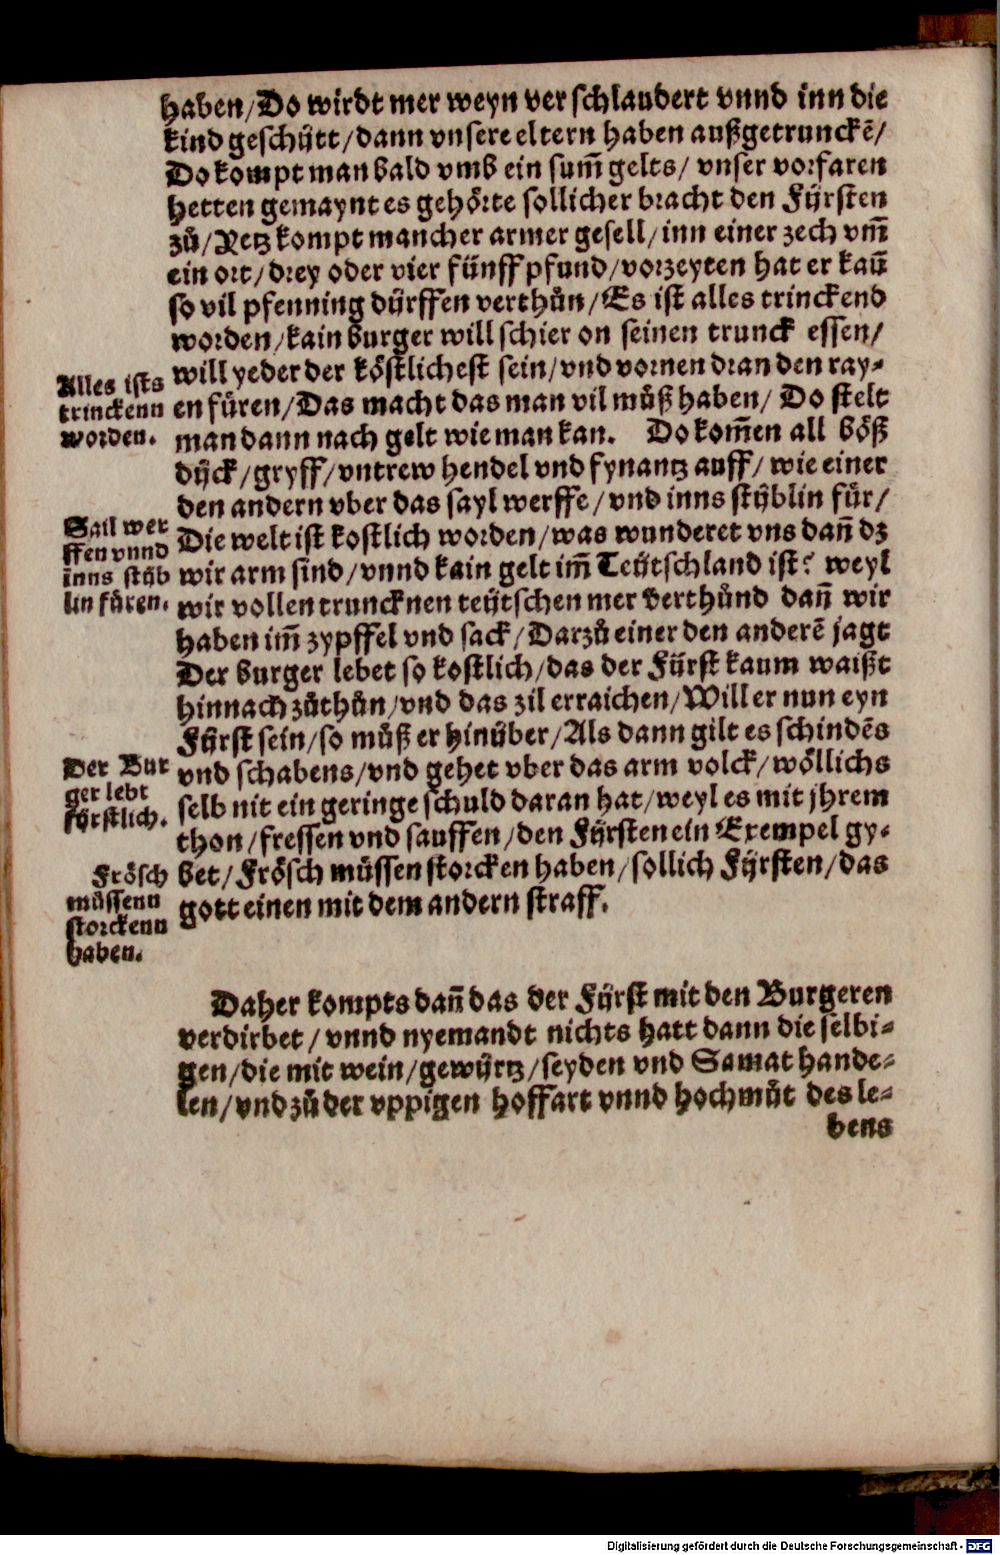 haben/Do wirdt mer weyn verschlaudert vnnd inn die
kind geschütt/dann vnsere eltern haben außgetrunckē/
Do kompt man bald vmb ein sum̃ gelts/ vnser vorfaren
hetten gemaynt es gehörte sollicher bracht den Fürsten
zů/Yetz kompt mancher armer gesell/inn einer zech vm̃
ein ort/drey oder vier fünff pfund/vorzeyten hat er kaũ
so vil pfenning dürffen verthůn/Es ist alles trinckend
worden/kain burger will schier on seinen trunck essen/
will yeder der köstlichest sein/vnd vornen dran den ray-
en füren/Das macht das man vil můß haben/ Do stelt
man dann nach gelt wie man kan. Do kom̃en all böß
dück/gryff/vntrew hendel vnd fynantz auff/ wie einer
den andern vber das sayl werffe/vnd inns stüblin für/
Die welt ist kostlich worden/was wunderet vns dañ dz
wir arm sind/vnnd kain gelt im̃ Teütschland ist? weyl
wir vollen truncknen teütschen mer verthůnd dañ wir
haben im̃ zypffel vnd sack/Darzů einer den anderē jagt
Der burger lebet so kostlich/das der Fürst kaum waißt
hinnach zůthůn/vnd das zil erraichen/Will er nun eyn
Fürst sein/so můß er hinüber/Als dann gilt es schindēs
vnd schabens/vnd gehet vber das arm volck/wöllichs
selb nit ein geringe schuld daran hat/weyl es mit jhrem
thon/fressen vnd sauffen/den Fürsten ein Exempel gy-
bet/Frösch müssen storcken haben/sollich Fürsten/das
gott einen mit dem andern straff.
Alles ists
trinckenn
worden.
Sail wer
ffen vnnd
inns stüb
lin füren.
Der Bur
ger lebt
fürstlich.
Frösch
müssenn
storckenn
haben.
Daher kompts dañ das der Fürst mit den Burgeren
verdirbet/vnnd nyemandt nichts hatt dann die selbi-
gen/die mit wein/gewürtz/seyden vnd Samat hande-
len/vnd zů der vppigen hoffart vnnd hochmůt des le-
bens
Digitalisierung gefördert durch die Deutsche Forschungsgemeinschaft - DFG